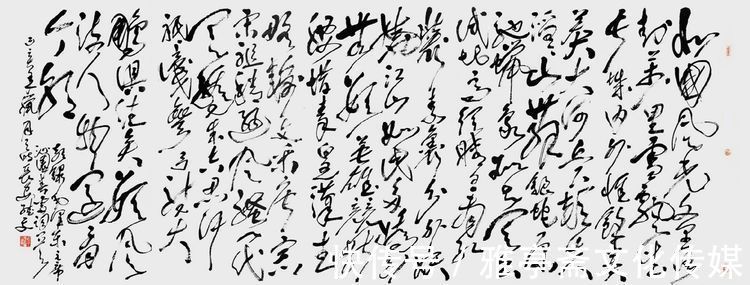 北国风光千里冰
封万里雪飘望
长城内外惟余莽
莽大河上下顿失滔
滔山舞银蛇原
驰蜡象欲与天公
试比高须晴日看红
装素裹分外妖
娆江山如此多娇引
无数英雄竞折
腰惜秦皇汉武
略输文采唐宗
宋祖稍逊风骚一代
天骄成吉思汗
只识弯弓射大
雕俱往矣数风
流人物还看
今朝
敬录毛泽东主席
沁园春雪词
快传号 / 雅亭斋文化传媒